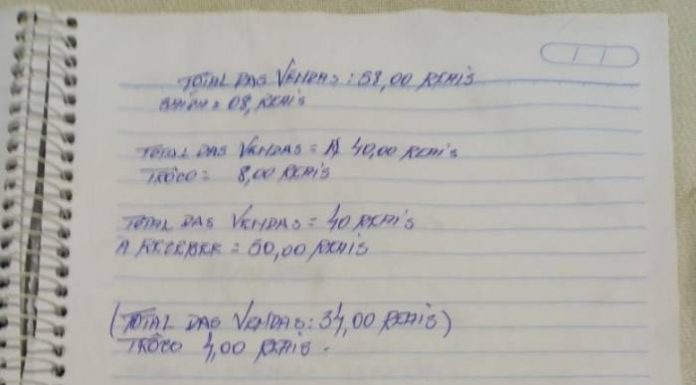 TOTAL DAS VENDAS: 58,00 REAIS
08, REAIS
TOTAL DAS VENDAS = 40,00 REAIS
TRÔCO = 8,00 REAIS
TOTAL DAS VENDAS = 40 REAIS
A RECEBER = 50,00 REAIS
(TOTAL DAS VENDAS: 34,00 REAIS)
TRÔCO 4,00 REAIS.